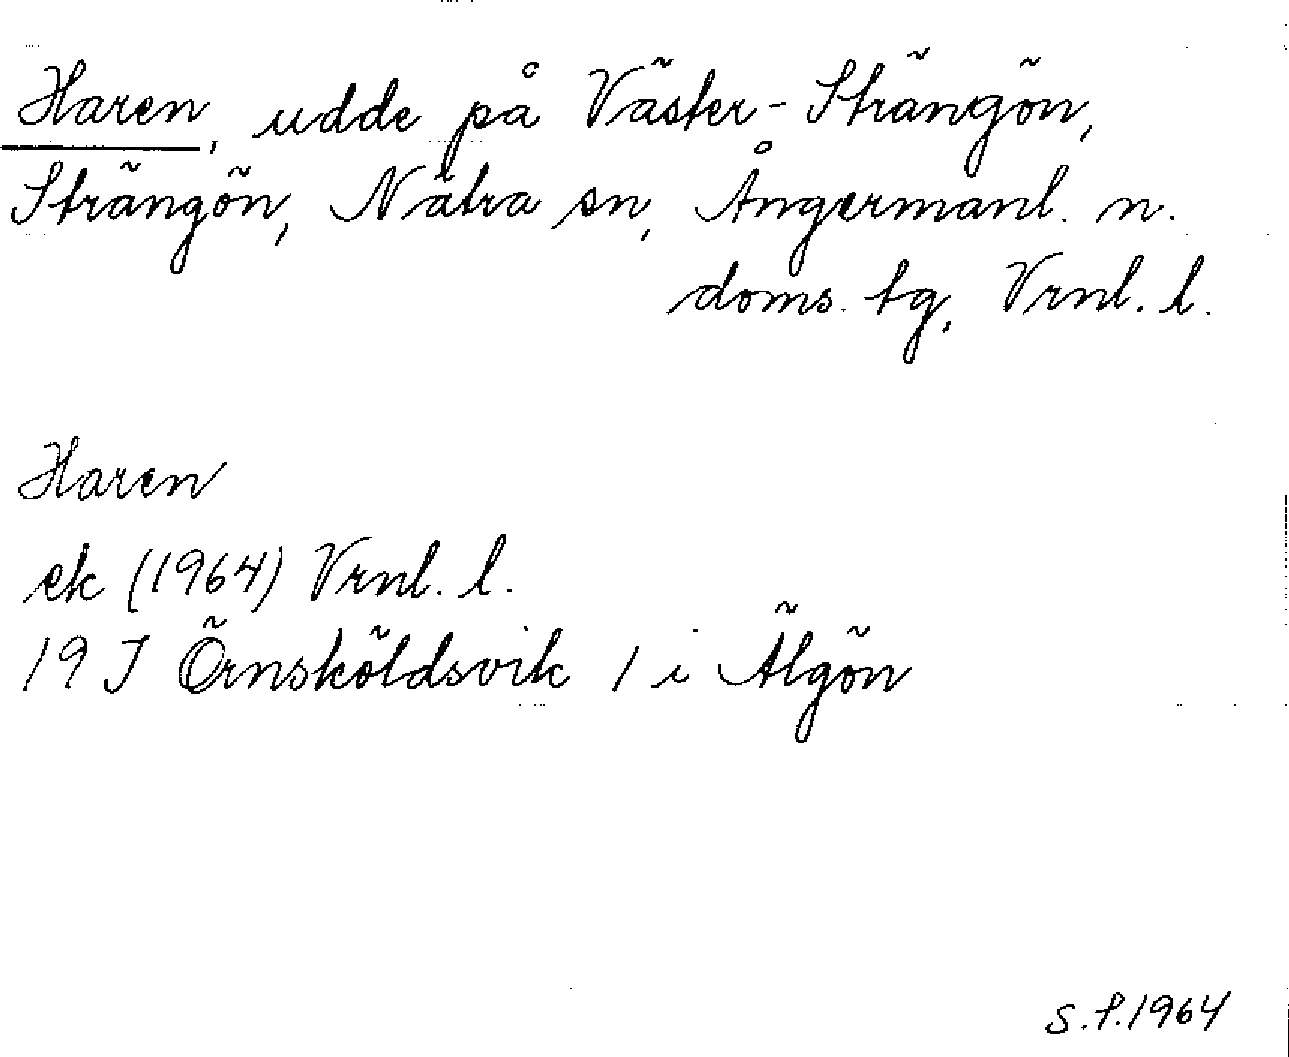 Haren, udde på Väster-Strängön,
Strängön, Nätra sn, Ångermanl. n.
doms. tg, Vrnl. l.
Haren
ek (1964) Vrnl. l.
19 J Örnsköldsvik 1 i Älgön
S.f. 1964